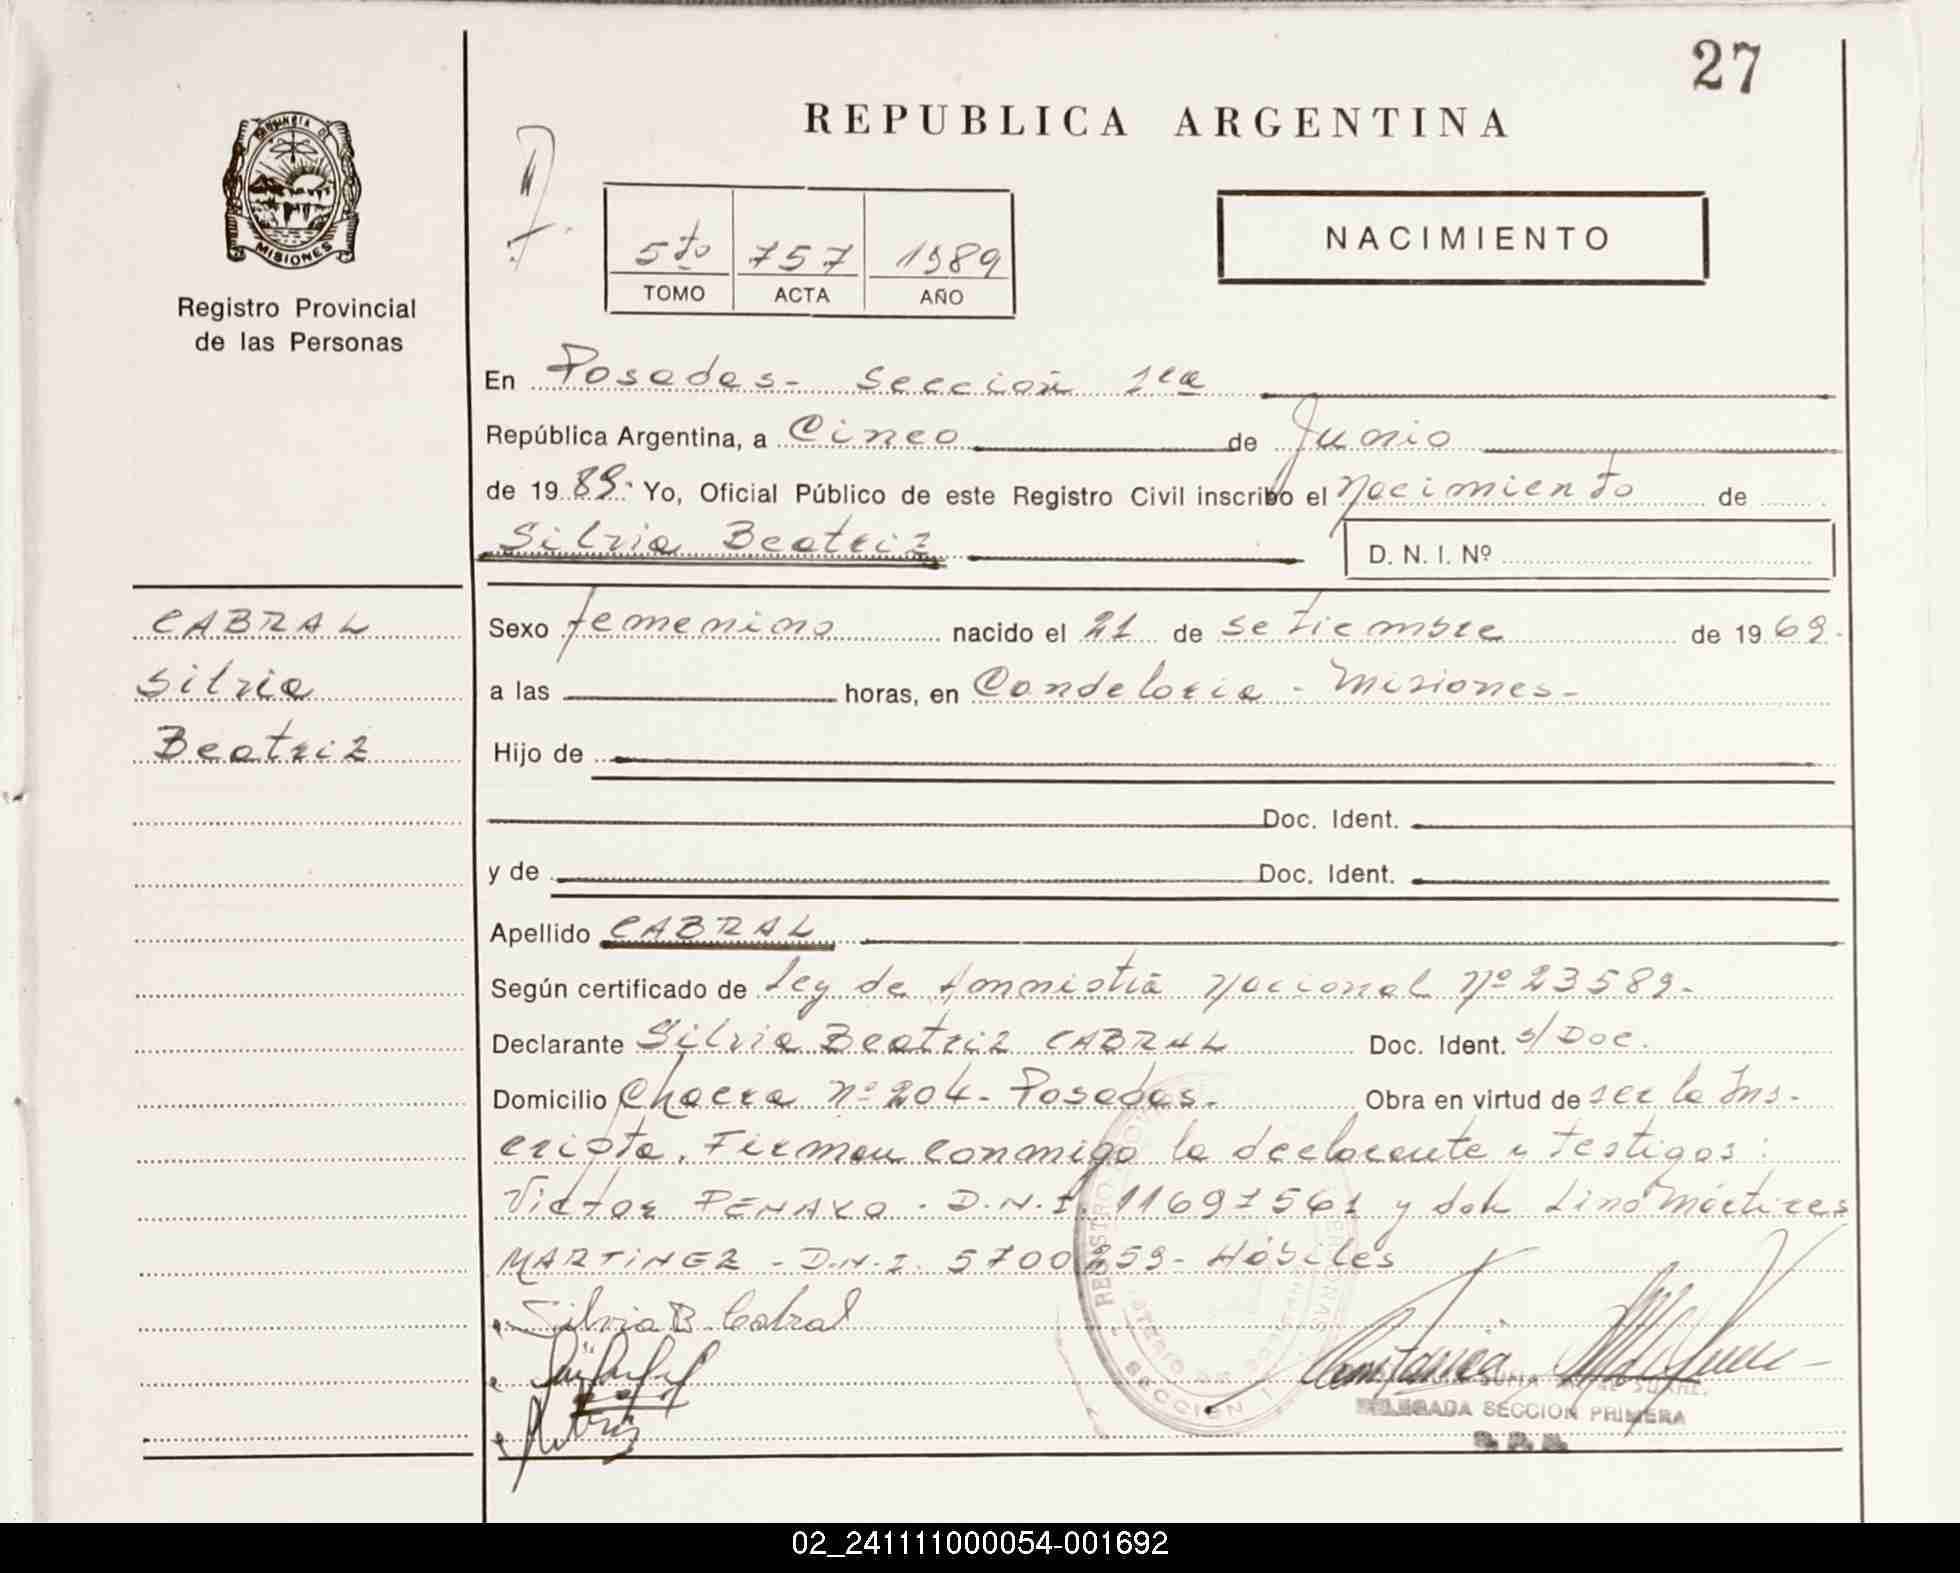 27
REPUBLICA ARGENTINA
PROVINCIA DE
MISIONES
Registro Provincial
de las Personas
5to 757 1989
TOMO ACTA AÑO
NACIMIENTO
En Posadas- Sección 1ra
República Argentina, a Cinco de Junio
de 19 89- Yo, Oficial Público de este Registro Civil inscribo el nacimiento de
Silvia Beatriz
D. N. I. Nº
CABRAL
Silvia
Beatriz
Sexo femenino nacido el 21 de setiembre de 19 69-
a las horas, en Candelaria - Misiones-
Hijo de
Doc. Ident.
y de Doc. Ident.
Apellido CABRAL
Según certificado de Ley de Amnistia Nacional Nº 23589-
Declarante Silvia Beatriz CABRAL Doc. Ident. s/Doc.
Domicilio Chacra nº 204- Posadas- Obra en virtud de ser la Ins-
cripta. Firman conmigo la declarante y testigos:
Victor PENAYO - D.N.I. 11697561 y don Lino Mártires
MARTINEZ - D.N.I. 5700259- Hábiles
Silvia B. Cabral
REGISTRO
SECCION 1
DELEGADA SECCION PRIMERA
02_241111000054-001692